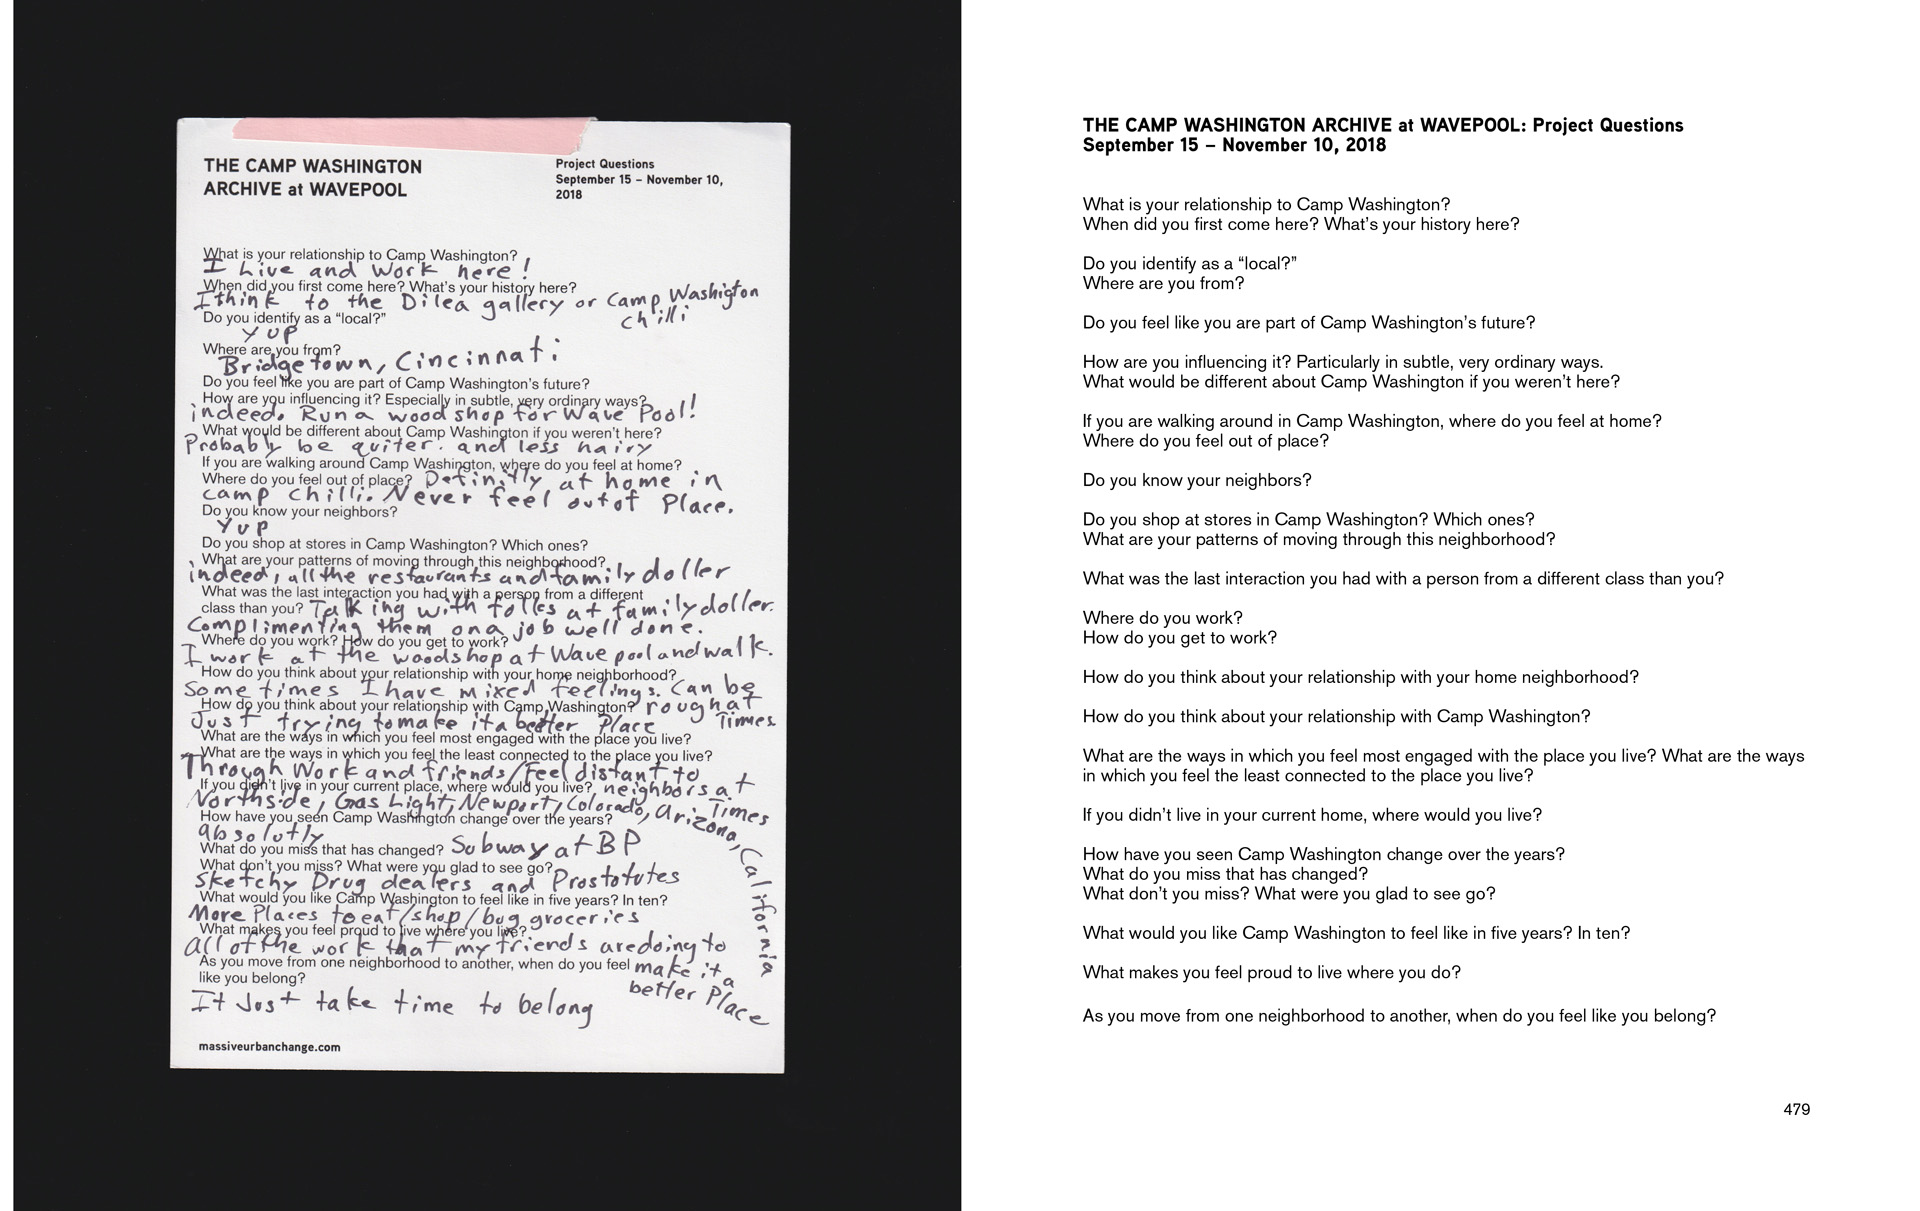 THE CAMP WASHINGTON
ARCHIVE at WAVEPOOL
Project Questions
September 15 – November 10,
2018
What is your relationship to Camp Washington?
I Live and Work here!
When did you first come here? What's your history here?
I think to the Dilea gallery or Camp Washigton
chilli
Do you identify as a “local?”
Yup
Where are you from?
Bridgetown, Cincinnati
Do you feel like you are part of Camp Washington's future?
How are you influencing it? Especially in subtle, very ordinary ways?
indeed. Run a wood shop for Wave Pool!
What would be different about Camp Washington if you weren't here?
Probably be quiter. and less hairy
If you are walking around Camp Washington, where do you feel at home?
Where do you feel out of place? Definitly at home in
camp chilli. Never feel out of Place.
Do you know your neighbors?
Yup
Do you shop at stores in Camp Washington? Which ones?
What are your patterns of moving through this neighborhood?
indeed, all the restaurants and family doller
What was the last interaction you had with a person from a different
class than you? Talking with folks at family doller.
Complimenting them on a job well done.
Where do you work? How do you get to work?
I work at the woodshop at Wave pool and walk.
How do you think about your relationship with your home neighborhood?
Some times I have mixed feelings. Can be
How do you think about your relationship with Camp Washington? rough at
Just trying to make it a better Place Times
What are the ways in which you feel most engaged with the place you live?
What are the ways in which you feel the least connected to the place you live?
Through Work and friends/Feel distant to
If you didn't live in your current place, where would you live? neighbors at
Times
Northside, Gas Light, Newport, Colorado, Arizona, California
How have you seen Camp Washington change over the years?
absolutly
What do you miss that has changed? Subway at BP
What don't you miss? What were you glad to see go?
Sketchy Drug dealers and Prostotutes
What would you like Camp Washington to feel like in five years? In ten?
More Places to eat/shop/bug groceries
What makes you feel proud to live where you live?
all of the work that my friends are doing to
As you move from one neighborhood to another, when do you feel make it a
like you belong? better Place
It Just take time to belong
massiveurbanchange.com
THE CAMP WASHINGTON ARCHIVE at WAVEPOOL: Project Questions
September 15 – November 10, 2018
What is your relationship to Camp Washington?
When did you first come here? What's your history here?
Do you identify as a “local?”
Where are you from?
Do you feel like you are part of Camp Washington's future?
How are you influencing it? Particularly in subtle, very ordinary ways.
What would be different about Camp Washington if you weren't here?
If you are walking around in Camp Washington, where do you feel at home?
Where do you feel out of place?
Do you know your neighbors?
Do you shop at stores in Camp Washington? Which ones?
What are your patterns of moving through this neighborhood?
What was the last interaction you had with a person from a different class than you?
Where do you work?
How do you get to work?
How do you think about your relationship with your home neighborhood?
How do you think about your relationship with Camp Washington?
What are the ways in which you feel most engaged with the place you live? What are the ways
in which you feel the least connected to the place you live?
If you didn't live in your current home, where would you live?
How have you seen Camp Washington change over the years?
What do you miss that has changed?
What don't you miss? What were you glad to see go?
What would you like Camp Washington to feel like in five years? In ten?
What makes you feel proud to live where you do?
As you move from one neighborhood to another, when do you feel like you belong?
479